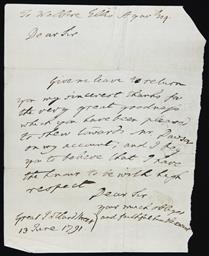 To Welbore Ellis Agar Esq.
Dear Sir
Give me leave to return
you my sincerest thanks for
the very great goodness
which you have been pleased
to shew towards Mr.
on my account; and I beg
you to believe that I have
the honour to be with high
respect
Dear Sir,
your much obliged
and faithful humble servant
Great
13 June 1791